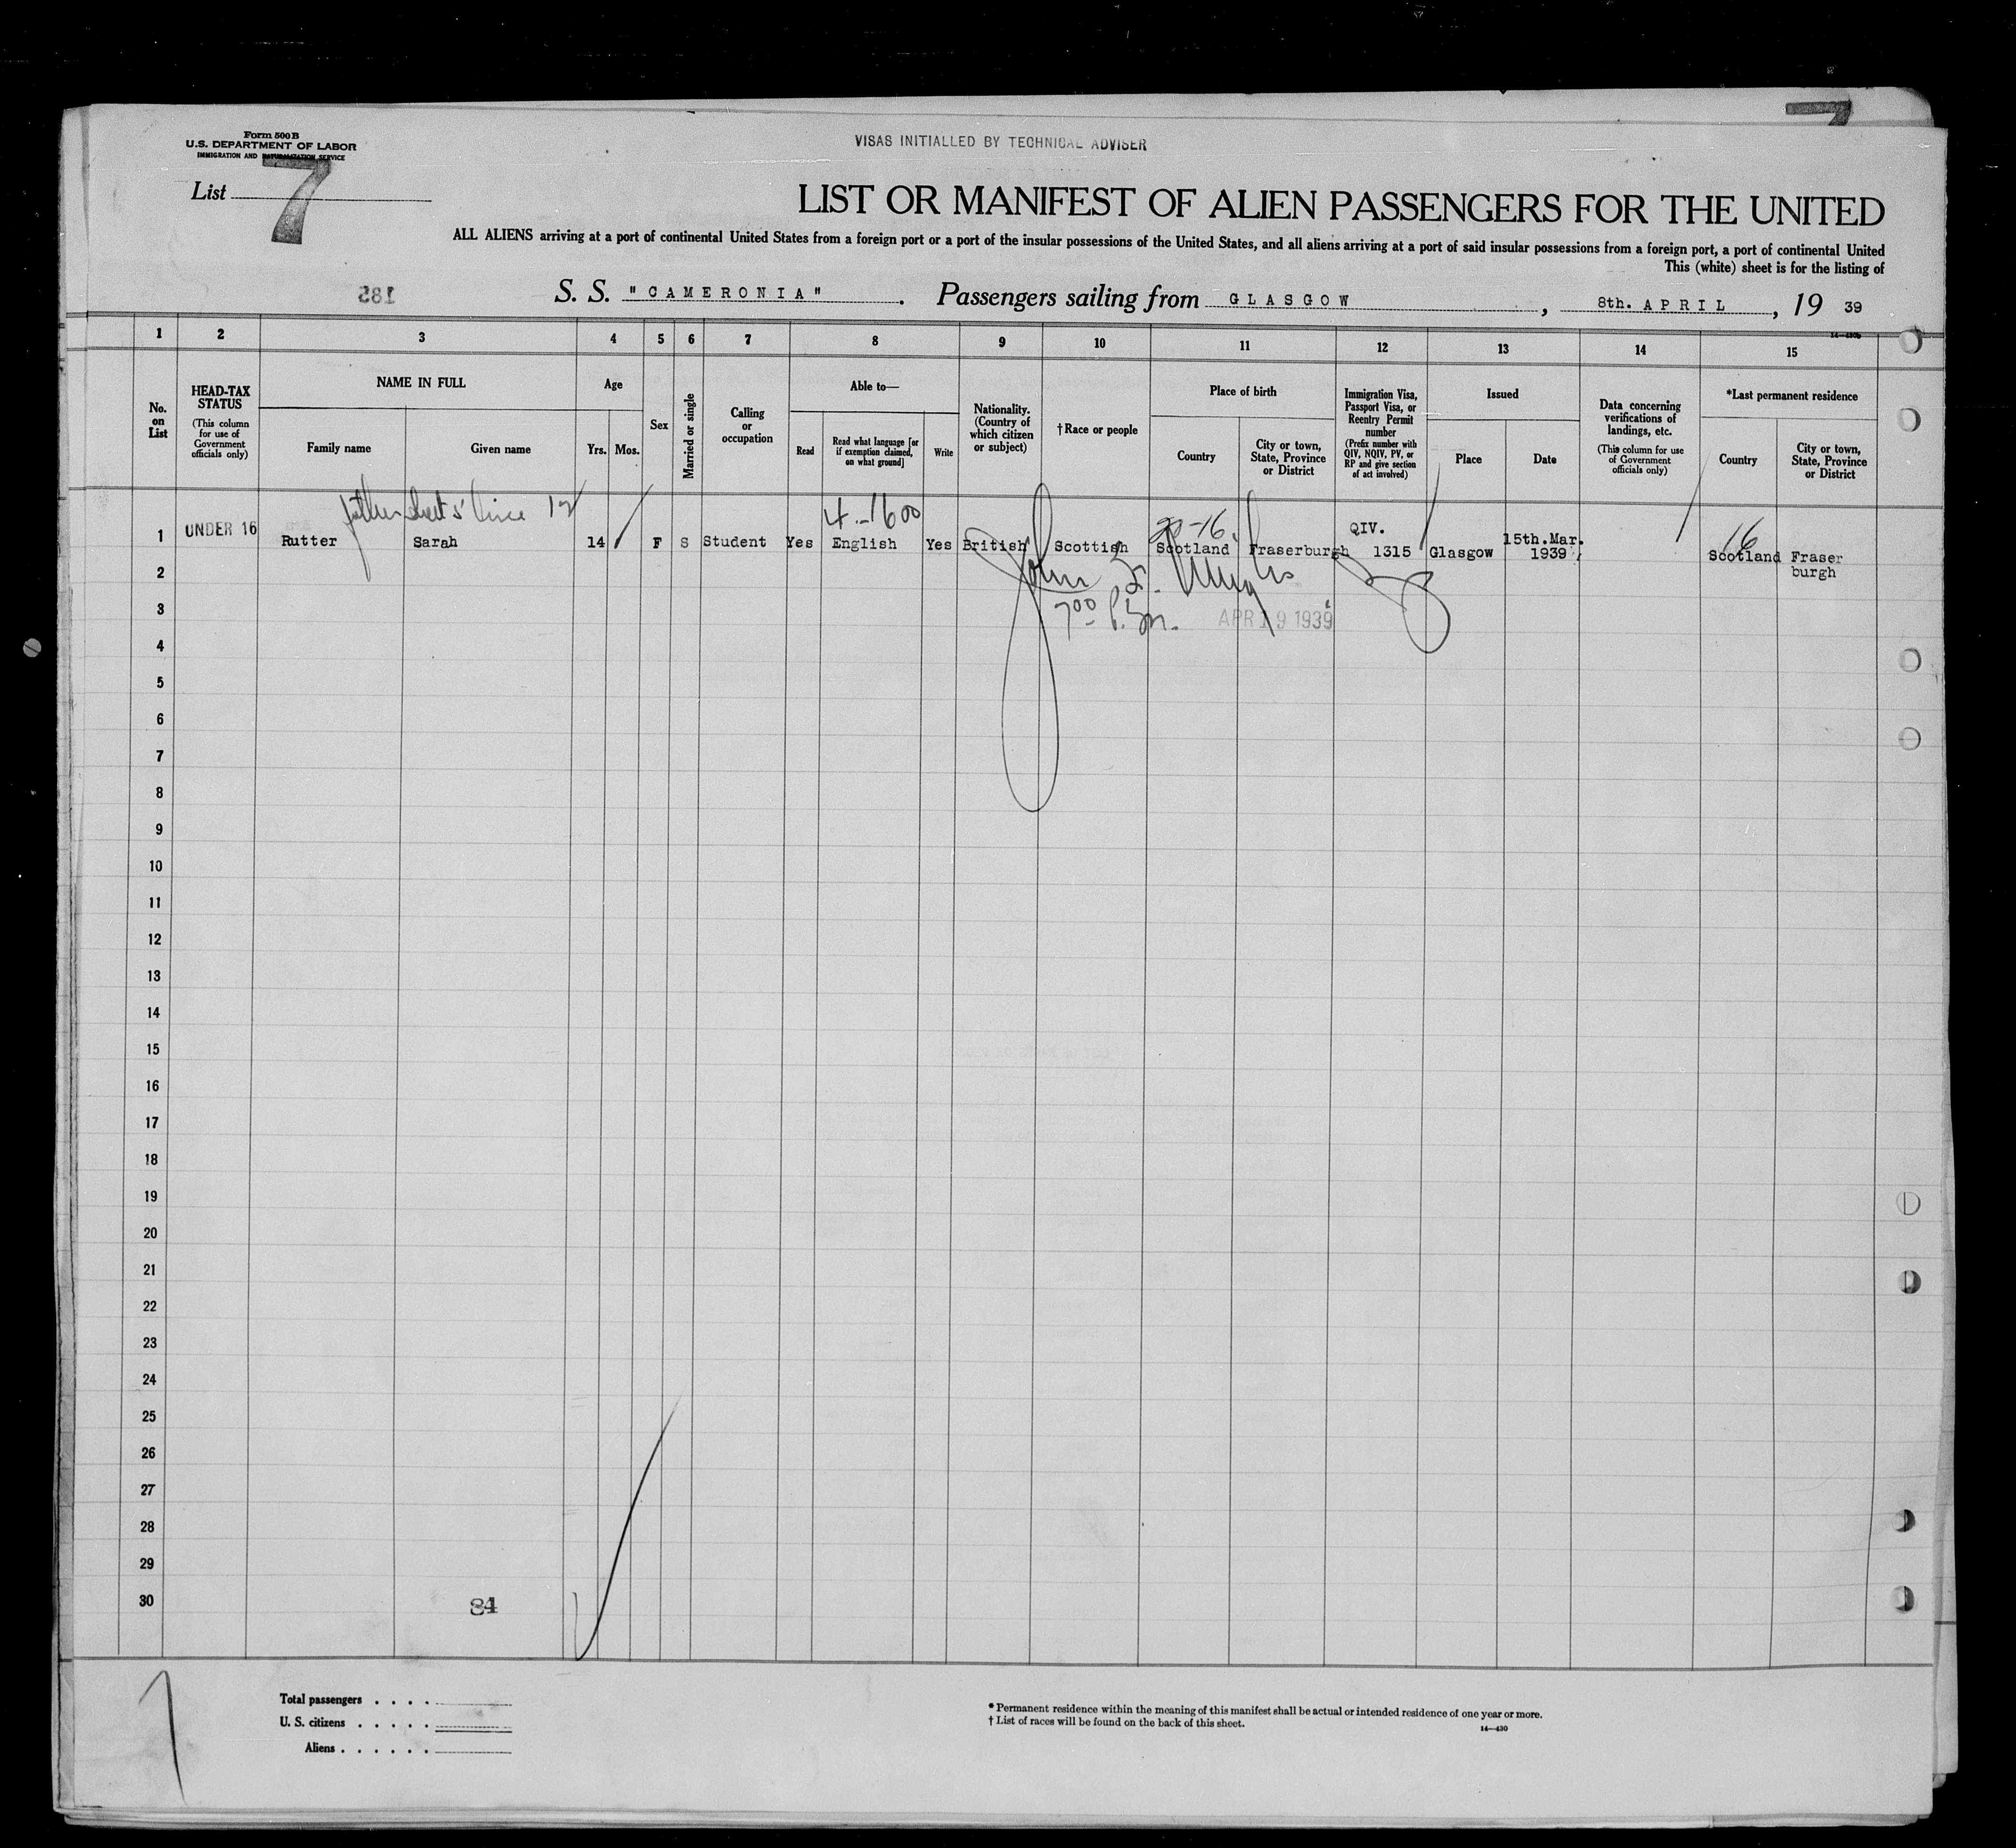 Form 500 B
U.S. DEPARTMENT OF LABOR
IMMIGRATION AND NATURALIZATION SERVICE
VISAS INITIALLED BY TECHNICAL ADVISER
List 7
LIST OR MANIFEST OF ALIEN PASSENGERS FOR THE UNITED
ALL ALIENS arriving at a port of continental United States from a foreign port or a port of the insular possessions of the United States, and all aliens arriving at a port of said insular possessions from a foreign port, a port of continental United
This (white) sheet is for the listing of
185
S. S. "CAMERONIA". Passengers sailing from GLASGOW, 8th. APRIL, 19 39
14—430b
1 2 3 4 5 6 7 8 9 10 11 12 13 14 15
No. on List
HEAD-TAX STATUS
(This column for use of Government officials only)
NAME IN FULL
Family name Given name
Age
Yrs. Mos.
Sex
Married or single
Calling or occupation
Able to—
Read
Read what language [or if exemption claimed, on what ground]
Write
Nationality. (Country of which citizen or subject)
†Race or people
Place of birth
Country
City or town, State, Province or District
Immigration Visa, Passport Visa, or Reentry Permit number
(Prefix number with QIV, NQIV, PV, or RP and give section of act involved)
Issued
Place Date
Data concerning verifications of landings, etc.
(This column for use of Government officials only)
*Last permanent residence
Country
City or town, State, Province or District
4-1600
20-16
16
1 UNDER 16 Rutter Sarah 14 F S Student Yes English Yes British Scottish Scotland Fraserburgh QIV. 1315 Glasgow 15th.Mar. 1939 Scotland Fraser burgh
2
John
3
7 00 P.M. APR 19 1939
4
5
6
7
8
9
10
11
12
13
14
15
16
17
18
19
20
21
22
23
24
25
26
27
28
29
30
84
Total passengers . . . .
U. S. citizens . . . . .
Aliens . . . . . .
* Permanent residence within the meaning of this manifest shall be actual or intended residence of one year or more.
† List of races will be found on the back of this sheet.
14—430